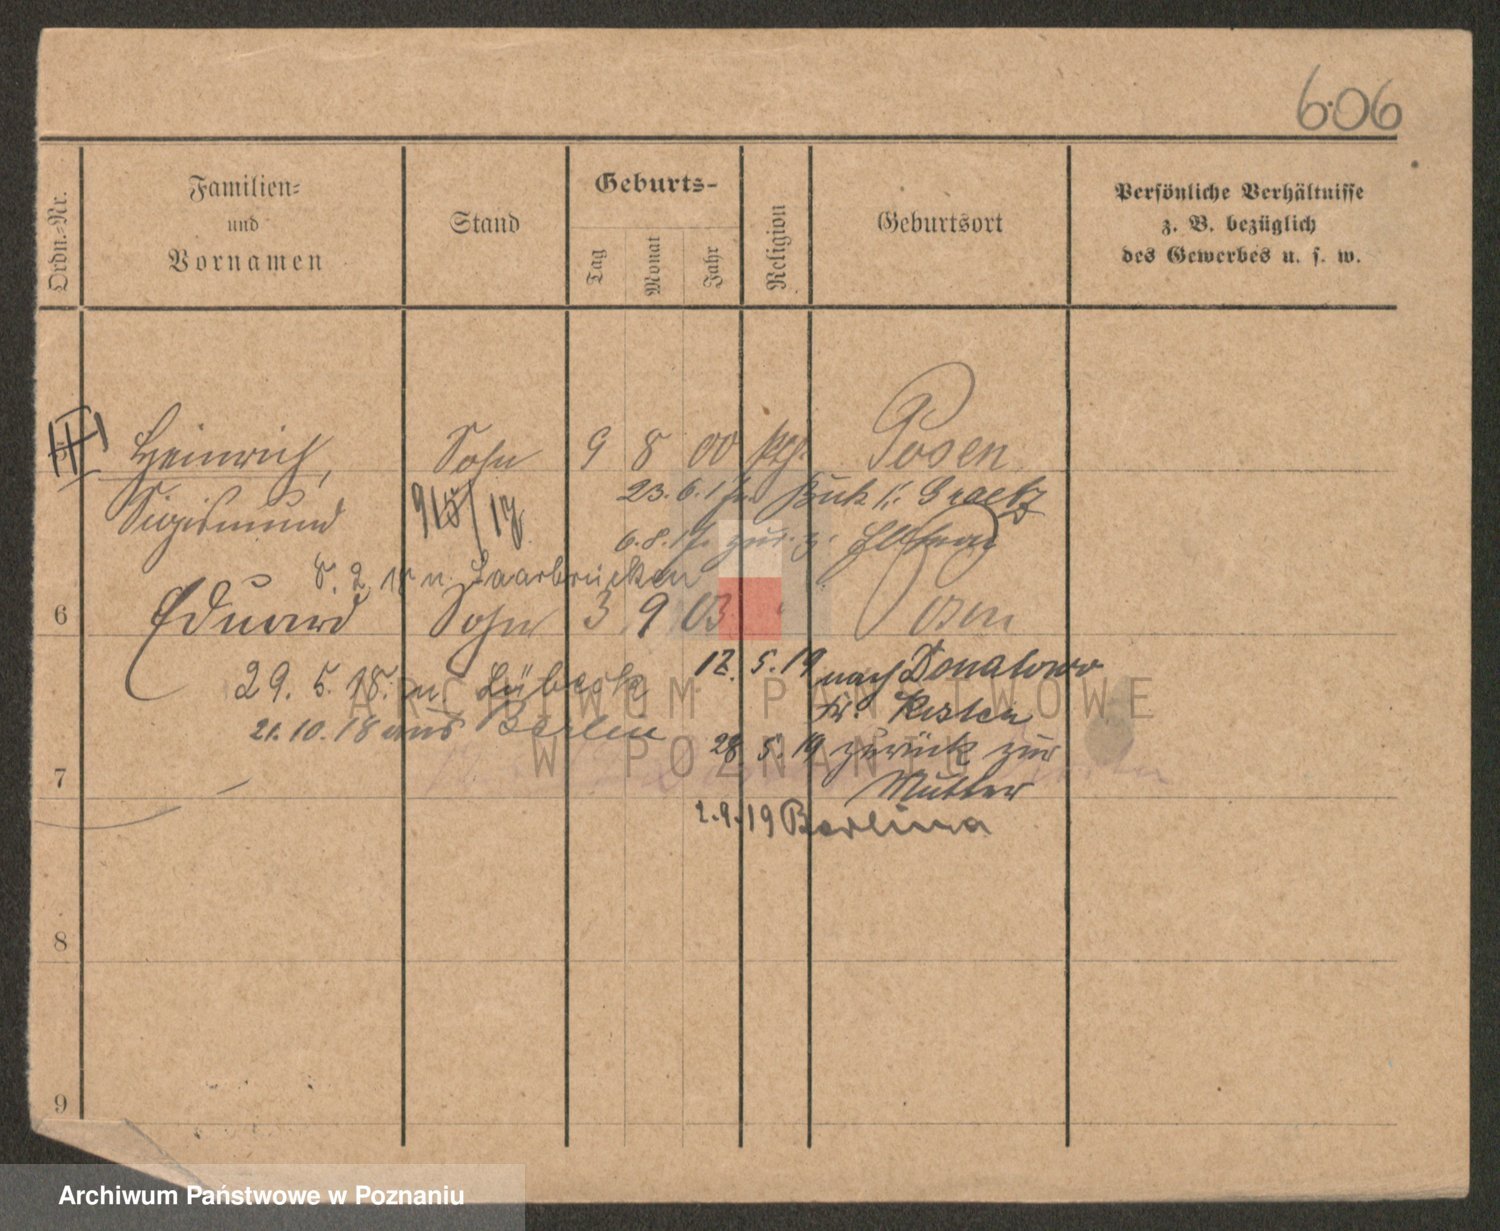 606
Ordn.-Nr.
Familien-
und
Vornamen
Stand
Geburts-
Tag
Monat
Jahr
Religion
Geburtsort
Persönliche Verhältnisse
z. B. bezüglich
des Gewerbes u. s. w.
Heinrich, Sohn 9 8 00 Posen
23.6.17 Buk K. Graetz
Sigismund 915/17
6.8.17 zur.
8. 2. 18 n. Saarbrücken
6 Eduard Sohn 3 9 03 Posen
17. 5. 19 nach Donatowo
29. 5. 18. n Lübeck
Kr. Kosten
21. 10. 18 aus Berlin
28 5. 19 zurück zur
7
Mutter
2.9.19 Berlina
8
9
ARCHIWUM PAŃSTWOWE
W POZNANIU
Archiwum Państwowe w Poznaniu